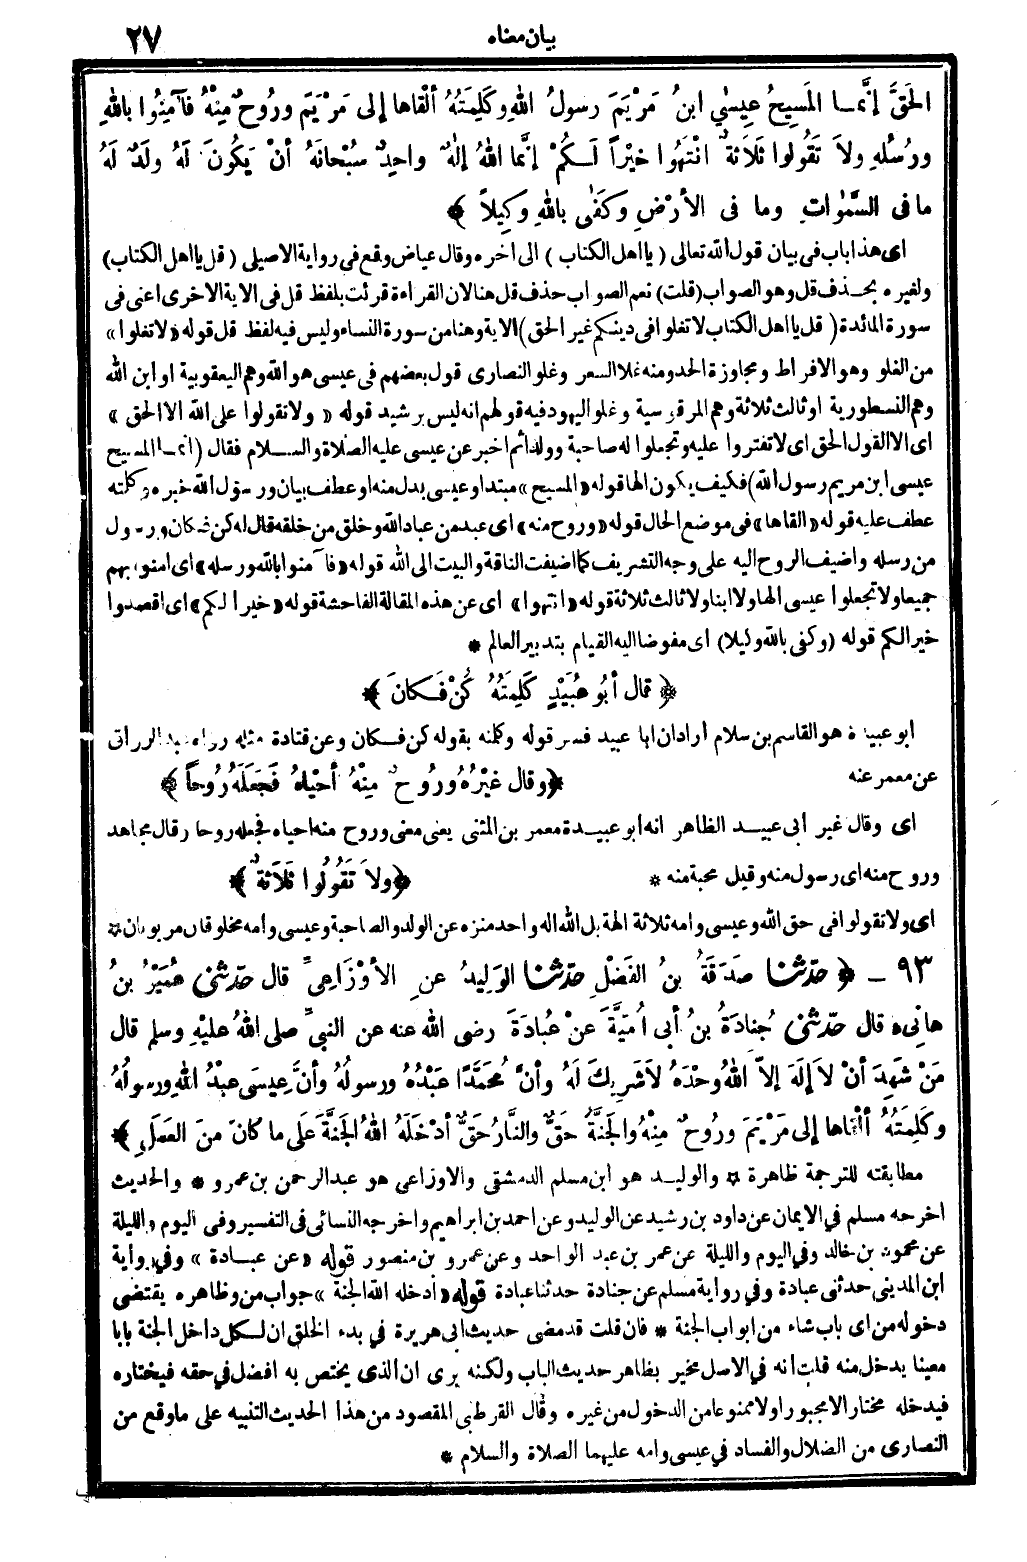 بيان معناه
٢٧
الحَقَّ إنَّمـا المَسِيحُ عِيسٰي ابنُ مَرْيَمَ رسولُ اللهِ وكَلِمَتُهُ ألْقاها إلى مَرْيَمَ ورُوحٌ مِنْهُ فآمِنُوا باللهِ
ورُسُلِهِ ولاَ تَقُولوا ثَلاَثةٌ انْتَهُوا خيْراً لَـكُمْ إنَّما اللهُ إلهٌ واحِدٌ سُبْحانَهُ أنْ يَكُونَ لَهُ ولَدٌ لَهُ
ما فى السَّمٰوات وما فى الأرْضِ وكَفَى باللهِ وكِيلاً ﴾
اى هذا باب فى بيان قول الله تعالى ( يا اهل الكتاب ) الى اخره وقال عياض وقع فى رواية الاصيلى ( قل يا اهل الكتاب)
ولغيره بحـذف قل وهو الصواب (قلت) نعم الصواب حذف قل هنا لان القراءة قرئت بلفظ قل فى الاية الاخرى اعنى فى
سورة المائدة ( قل يا اهل الكتاب لا تغلوا فى دينكم غير الحق ) الاية وهنا من سورة النساء وليس فيه لفظ قل قوله «لا تغلوا»
من الغلو وهو الافراط ومجاوزة الحد ومنه غلا السعر وغلو النصارى قول بعضهم فى عيسى هو الله وهم اليعقوبية او ابن الله
وهم النسطورية او ثالث ثلاثة وهم المرقوسية وغلو اليهود فيه قولهم انه ليس برشيد قوله « ولا تقولوا على الله الا الحق »
اى الا القول الحق اى لا تفتروا عليه وتجعلوا له صاحبة وولدا ثم اخبر عن عيسى عليه الصلاة والسـلام فقال (انمـا المسيح
عيسى ابن مريم رسول الله) فكيف يكون الها قوله «المسيح» مبتدا وعيسى بدل منه او عطف بيان ورسول الله خبره وكلمته
عطف عليه قوله «القاها» فى موضع الحال قوله «وروح منه» اى عبد من عباد الله وخلق من خلقه قال له كن فكان ورسول
من رسله واضيف الروح اليه على وجه التشريف كما اضيفت الناقة والبيت الى الله قوله «فآمنوا بالله ورسله» اى امنوا بهم
جميعا ولا تجعلوا عيسى الها ولا ابنا ولا ثالث ثلاثة قوله «انتهوا» اى عن هذه المقالة الفاحشة قوله «خيرا لكم» اى اقصدوا
خيرا لكم قوله (وكفى بالله وليلا) اى مفوضا اليه القيام بتدبير العالم *
﴿ قال أبُو عُبَيْدٍ كَلِمَتُهُ كُنْ فَكانَ ﴾
ابو عبيد هو القاسم بن سلام ارادان ابا عبيد فسر قوله وكلمته بقوله كن فـكان وعن قتادة مثله رواه عبد الرزاق
عن معمر عنه
﴿وقال غيْرُهُ ورُوحٌ مِنْهُ أحْياهُ فَجَعَلَهُ رُوحاً ﴾
اى وقال غير أبى عبيـد الظاهر انه ابو عبيدة معمر بن المثنى يعنى معنى وروح منه احياه فجعله روحا وقال مجاهد
وروح منه اى رسول منه وقيل محبة منه *
﴿ولاَ تَقُولُوا ثَلاَثةٌ ﴾
اى ولا تقولوا فى حق الله وعيسى وامه ثلاثة الهة بل الله اله واحد منزه عن الولد والصاحبة وعيسى وامه مخلوقان مربوبان *
٩٣ ــ ﴿ حدّثنا صَدَقَةُ بنُ الفَضْلِ حدّثنا الوَلِيدُ عنِ الأوْزَاعِيِّ قال حدّثنى عُمَيْرُ بنُ
هانِىءٍ قال حدّثنى جُنادَةُ بنُ أبى اُمَيَّةَ عنْ عُبادَةَ رضى الله عنه عن النبيِّ صلى اللهُ عليْهِ وسلم قال
مَنْ شَهِدَ أنْ لاَ إلَهَ إلاّ اللهُ وحْدَهُ لاَ شَرِيكَ لَهُ وأنَّ مُحَمَّدًا عَبْدُهُ ورسولُهُ وأنَّ عِيسَى عبْدُ اللهِ ورسولُهُ
وكَلِمَتُهُ ألْقاها إلى مَرْيَمَ ورُوحٌ مِنْهُ والجَنَّةُ حَقٌّ والنَّارُ حَقٌّ أدْخَلَهُ اللهُ الجَنَّةَ عَلَى ما كانَ منَ العَمَلِ ﴾
مطابقته للترجمة ظاهرة * والوليـد هو ابن مسلم الدمشقى والاوزاعى هو عبد الرحمن بن عمرو * والحديث
اخرجه مسلم في الايمان عن داود بن رشيد عن الوليد وعن احمد بن ابراهيم واخرجه النسائى فى التفسير وفى اليوم والليلة
عن محمود بن خالد وفي اليوم والليلة عن عمر بن عبد الواحد وعن عمرو بن منصور قوله «عن عبـادة » وفي رواية
ابن المدينى حدثنى عبادة وفي رواية مسلم عن جنادة حدثنا عبادة قوله «ادخله الله الجنة » جواب من وظاهره يقتضى
دخوله من اى باب شاء من ابواب الجنة * فان قلت قد مضى حديث ابى هريرة في بدء الخلق ان لـكل داخل الجنة بابا
معينا يدخل منه قلت انه في الاصل مخير بظاهر حديث الباب ولكنه يرى ان الذى يختص به افضل في حقه فيختاره
فيدخله مختارا لا مجبورا ولا ممنوعا من الدخول من غيره وقال القرطبى المقصود من هذا الحديث التنبيه على ما وقع من
النصارى من الضلال والفساد في عيسى وامه عليهما الصلاة والسلام *